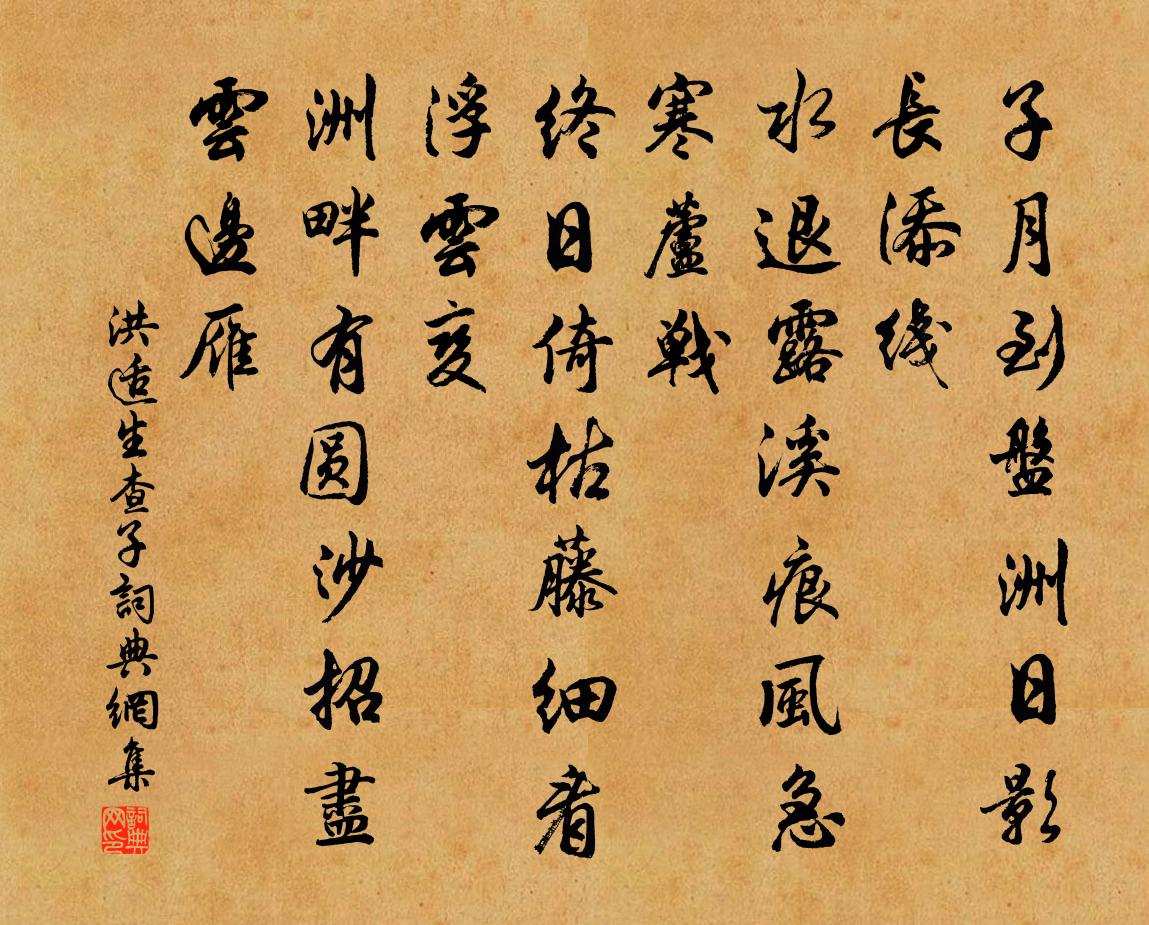 子月到盤洲日影
長添綫
水退露溪痕風急
寒蘆戰
終日倚枯藤細看
浮雲変
洲畔有圓沙招盡
雲邊雁
洪适生查子詞典網集
詞典网印